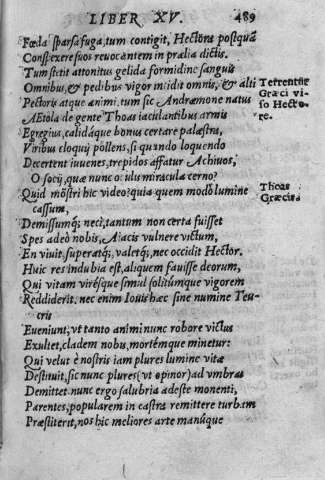 LIBER XV. 489
Fœda sparsa fuga, tum contigit, Hectora postquã
Conspexere suos revocantem in prælia dictis.
Tum stetit attonitus gelida formidine sanguis
Omnibus, & pedibus vigor inidit omnis, & alti
Terrentur
Græci vi
so Hecto
re.
Pectoris atque animi. tum sic Andræmone natus
AEtola de gente Thoas iaculantibus armis
Egregius, calidáque bonus certare palæstra,
Viribus eloquij pollens, si quando loquendo
Decertent iuuenes, trepidos affatur Achiuos,
O socij, quæ nunc oculis miracula cerno?
Quid mõstri hic video? quia quem modò lumine
Thoas
Græcis a
cassum,
Demissumq; neci, tantum non certa fuisset
Spes adeò nobis, Aiacis vulnere victum,
En viuit. superatq;, valetq;, nec occidit Hector.
Huic res indubia est, aliquem fauisse deorum,
Qui vitam virésque simul solitúmque vigorem
Reddiderit. nec enim Iouis hæc sine numine Teu-
cris
Eueniunt, vt tanto animi nunc robore victus
Exultet, cladem nobis, mortémque minetur:
Qui velut è nostris iam plures lumine vitæ
Destituit, sic nunc plures (vt opinor) ad vmbras
Demittet. nunc ergo salubria adeste monenti,
Parentes, popularem in castra remittere turbam
Præstiterit, nos hic arte manúque